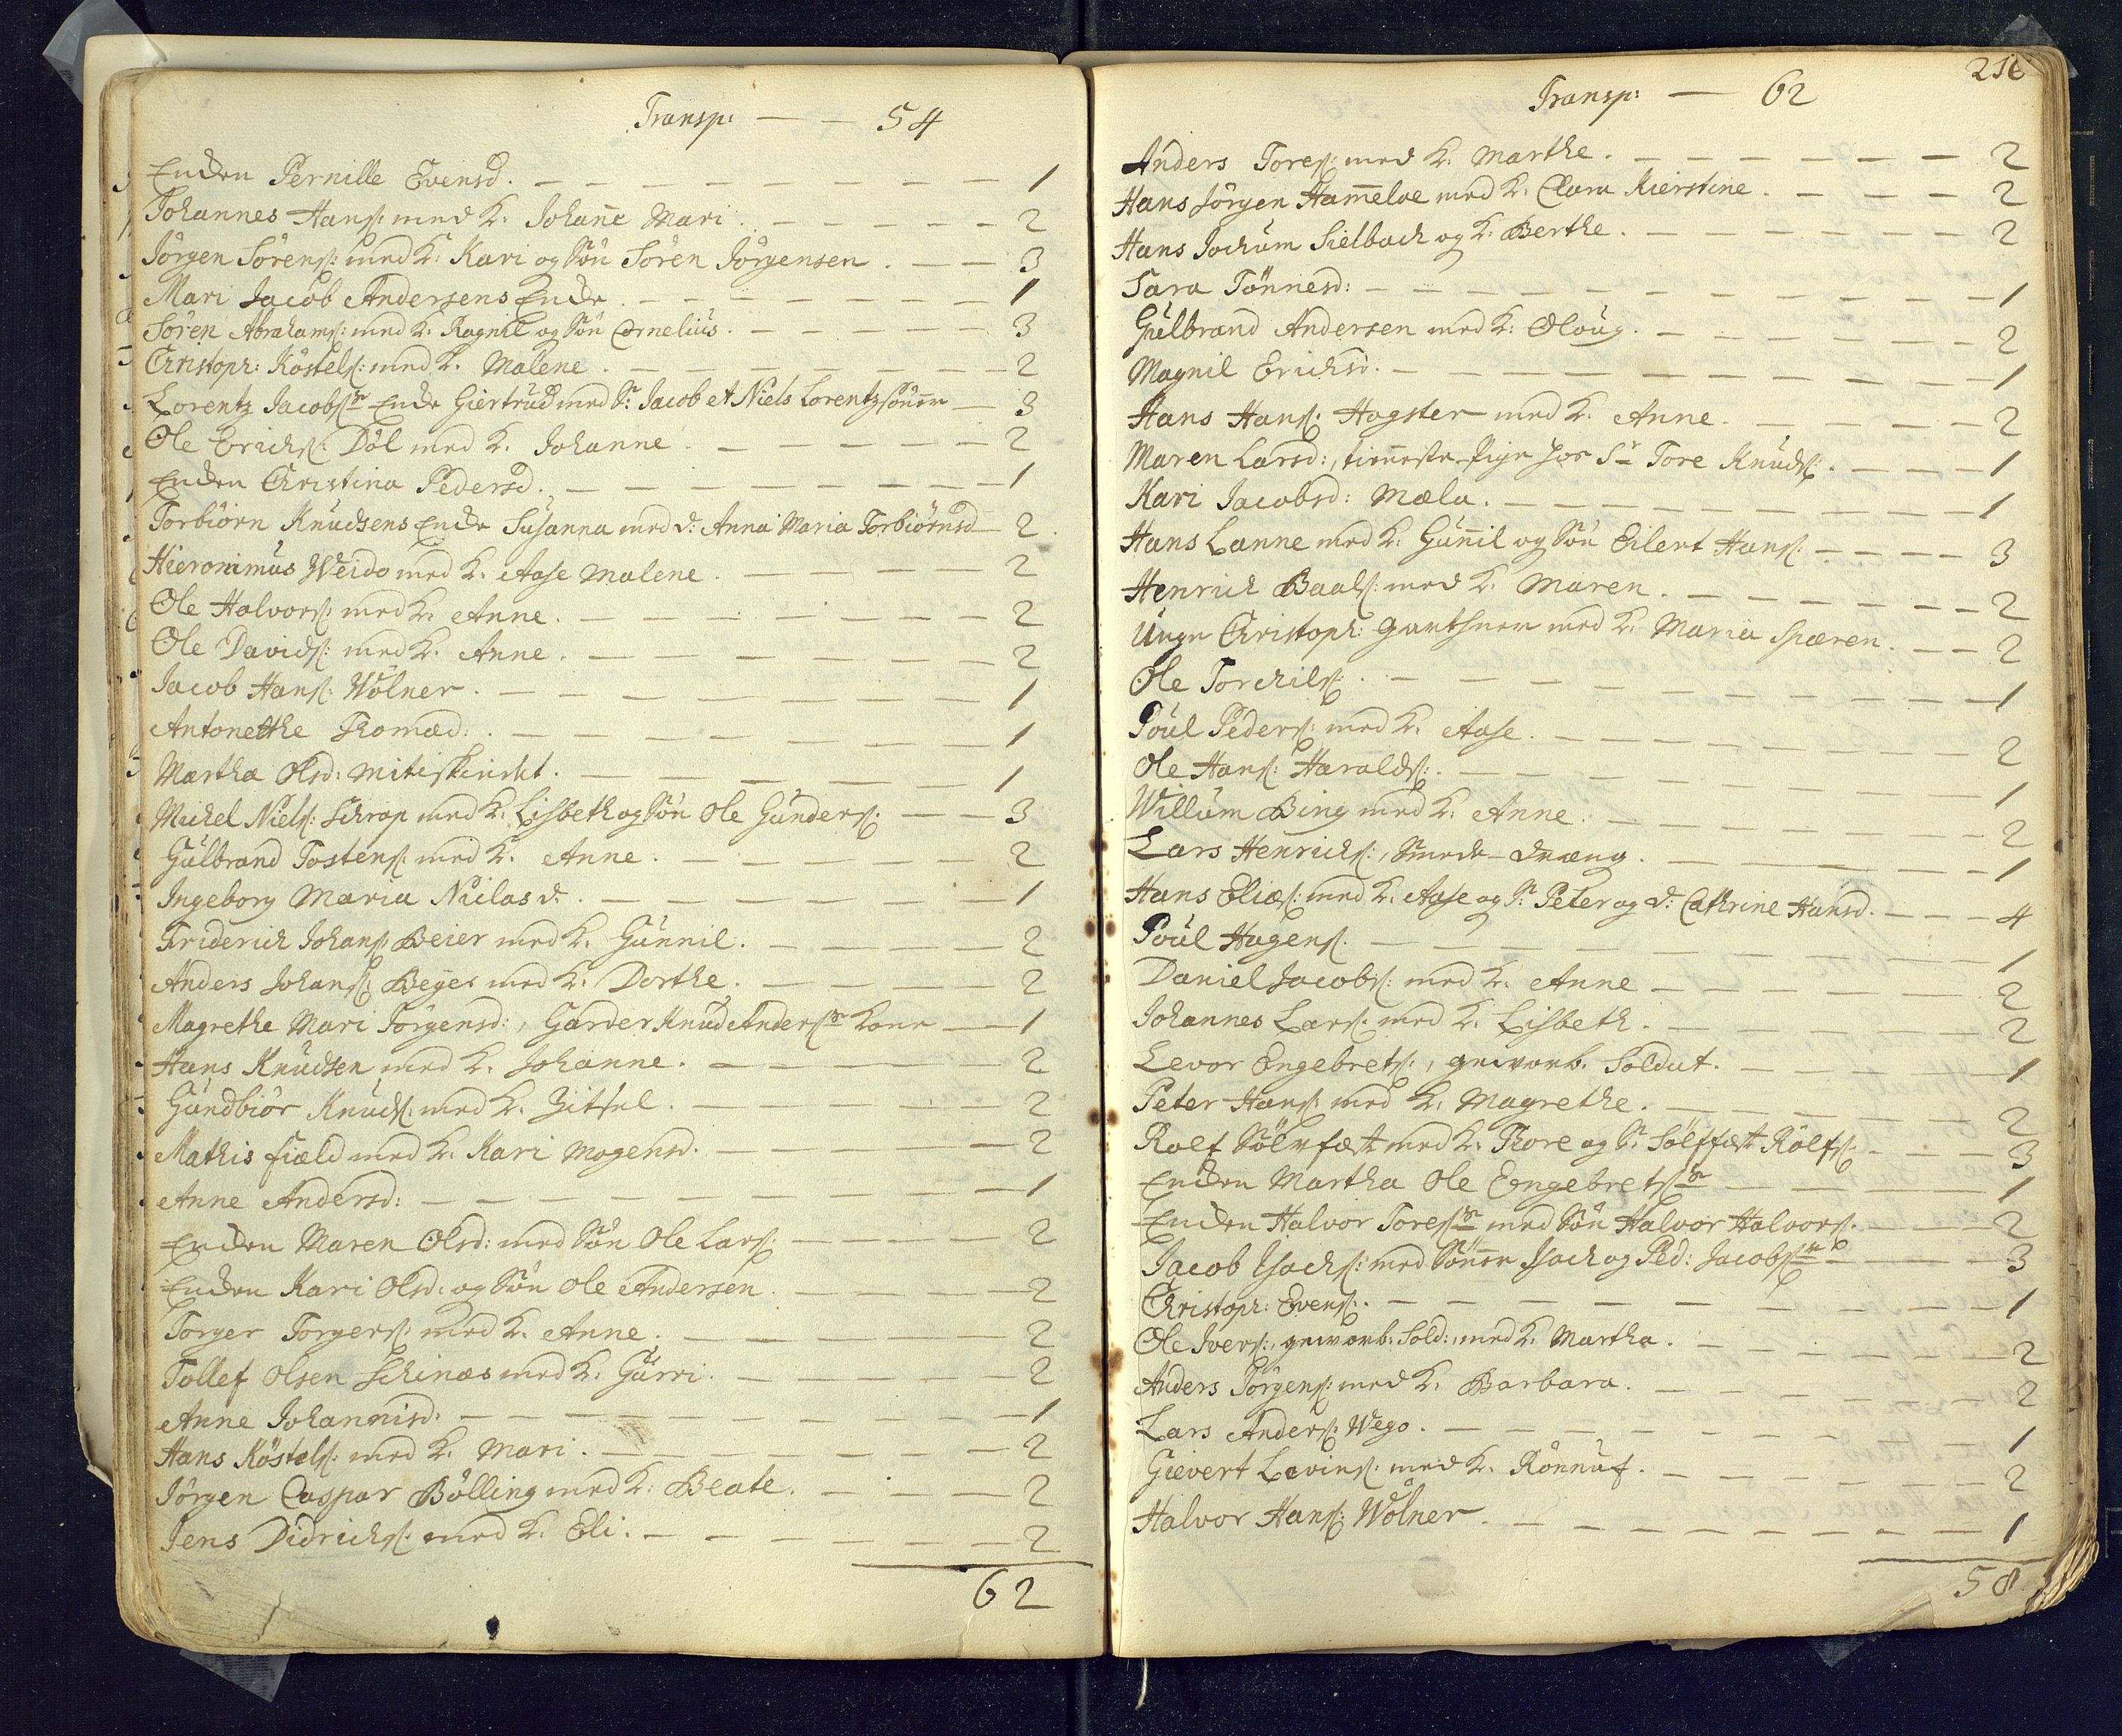 Transp: — — 54
Enken Pernille Evensd. — 1
Johannes Hans: med K. Johan̄e Mari. — 2
Jörgen Sörens: med K. Kari og Sön Sören Jörgensen. — 3
Mari Jacob Andersens Enke. — 1
Sören Abrahams: med K. Ragnil og Sön Cornelius. — 3
Christoph: Köstels: med K. Malene. — 2
Lorentz Jacobsns Enke Giertrud med Sr. Jacob et Niels Lorentzsönner — 3
Ole Erichs: Döl med K. Johanne — 2
Enken Christina Pedersd. — 1
Torbiörn Knudsens Enke Susanna med d: Anna Maria Torbiörnsd — 2
Hieronimus Weido med K. Aase Malene. — 2
Ole Halvors: med K. Anne. — 2
Ole Davids: med K. Anne. — 2
Jacob Hans: Wölner. — 1
Antonetthe Thomæd: — 1
Martha Olsd: — 1
Michel Niels: Schrap med K. Lisbeth og Sön Ole Gunders: — 3
Gulbrand Tostens: med K. Anne. — 2
Ingeborg Maria Niilasd. — 1
Friderich Johans: Beier med K. Gunnil. — 2
Anders Johans: Beyer med K. Dorthe. — 2
Magrethe Mari Jörgensd:, Garder Knud Andersns Kone — 1
Hans Knudsen med K. Johanne. — 2
Gundbiör Knuds: med K. Zitsel. — 2
Mathis Fiæld med K. Kari Mogensd. — 2
Anne Andersd: — 1
Enken Maren Olsd: med Sön Ole Lars: — 2
Enken Kari Olsd: og Sön Ole Andersen. — 2
Torger Torgers: med K. Anne. — 2
Tollef Olsen Schinæs med K. Gurri. — 2
Anne Johannisd. — 1
Hans Köstels: med K. Mari. — 2
Jörgen Caspar Bölling med K. Beate. — 2
Jens Didrichs: med K. Eli. — 2
62
216
Transp: — 62
Anders Tores: med K. Marthe. — 2
Hans Jörgen Ham̄eloe med K. Clara Kierstine. — 2
Hans Jochum Sielbach og K. Berthe. — 2
Sara Tönnesd: — 1
Gulbrand Andersen med K: Oloug. — 2
Magnil Erichsd. — 1
Hans Hans: Hogster med K. Anne. — 2
Maren Larsd:, tienneste Pige hos Sr Tore Knuds: — 1
Kari Jacobsd: Mæla. — 1
Hans Lanne med K. Gun̄il og Sön Eilert Hans: — 3
Henrich Baals: med K. Maren. — 2
Unge Christoph: Garthner med K. Maria Spæren. — 2
Ole Torchils: — 1
Poul Peders: med K. Aase. — 2
Ole Hans: Haralds: — 1
Willum Bing med K. Anne. — 2
Lars Henrichs:, Smede-Dræng. — 1
Hans Eliæs: med K. Aase og Sr. Peter og d: Cathrine Hansd. — 4
Poul Hagens: — 1
Daniel Jacobs: med K. Anne — 2
Johannes Lars: med K. Lisbeth. — 2
Levor Engebrets:, gevorb. Soldat. — 1
Peter Hans: med K. Magrethe. — 2
Rolf Sölvfæst med K. Thore og Sn. Sölffæst Rolfs: — 3
Enken Martha Ole Engebretsns — 1
Enken Halvor Toresns med Sön Halvor Halvors: — 2
Jacob Isachs: med Sönner Isach og Ped: Jacobsnr — 3
Christoph: Evens: — 1
Ole Ivers:, gevorb: Sold:, med K. Martha. — 2
Anders Jörgens: med K. Barbara. — 2
Lars Anders: Wego. — 1
Gievert Levins: med K. Rönnuf. — 2
Halvor Hans: Wölner. — 1
58